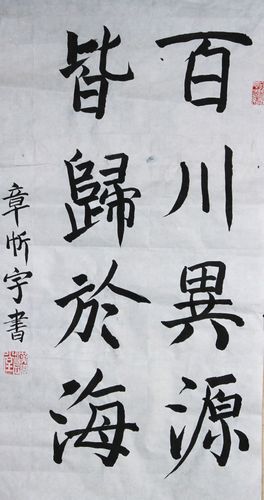 百川異源
皆歸於海
章昕宇書